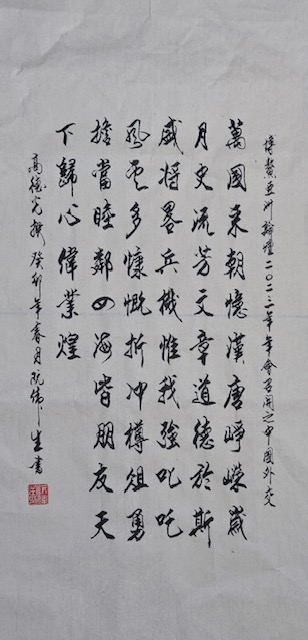 博鰲亞洲論壇二〇二三年年會召開之中國外交
萬國來朝憶漢唐崢嶸歲
月史流芳文章道德於斯
盛將畧兵機惟我強叱吒
風雲多慷慨折冲樽俎勇
擔當睦鄰四海皆朋友天
下歸心偉業煌
高德光撰癸卯年春月阮偉生書